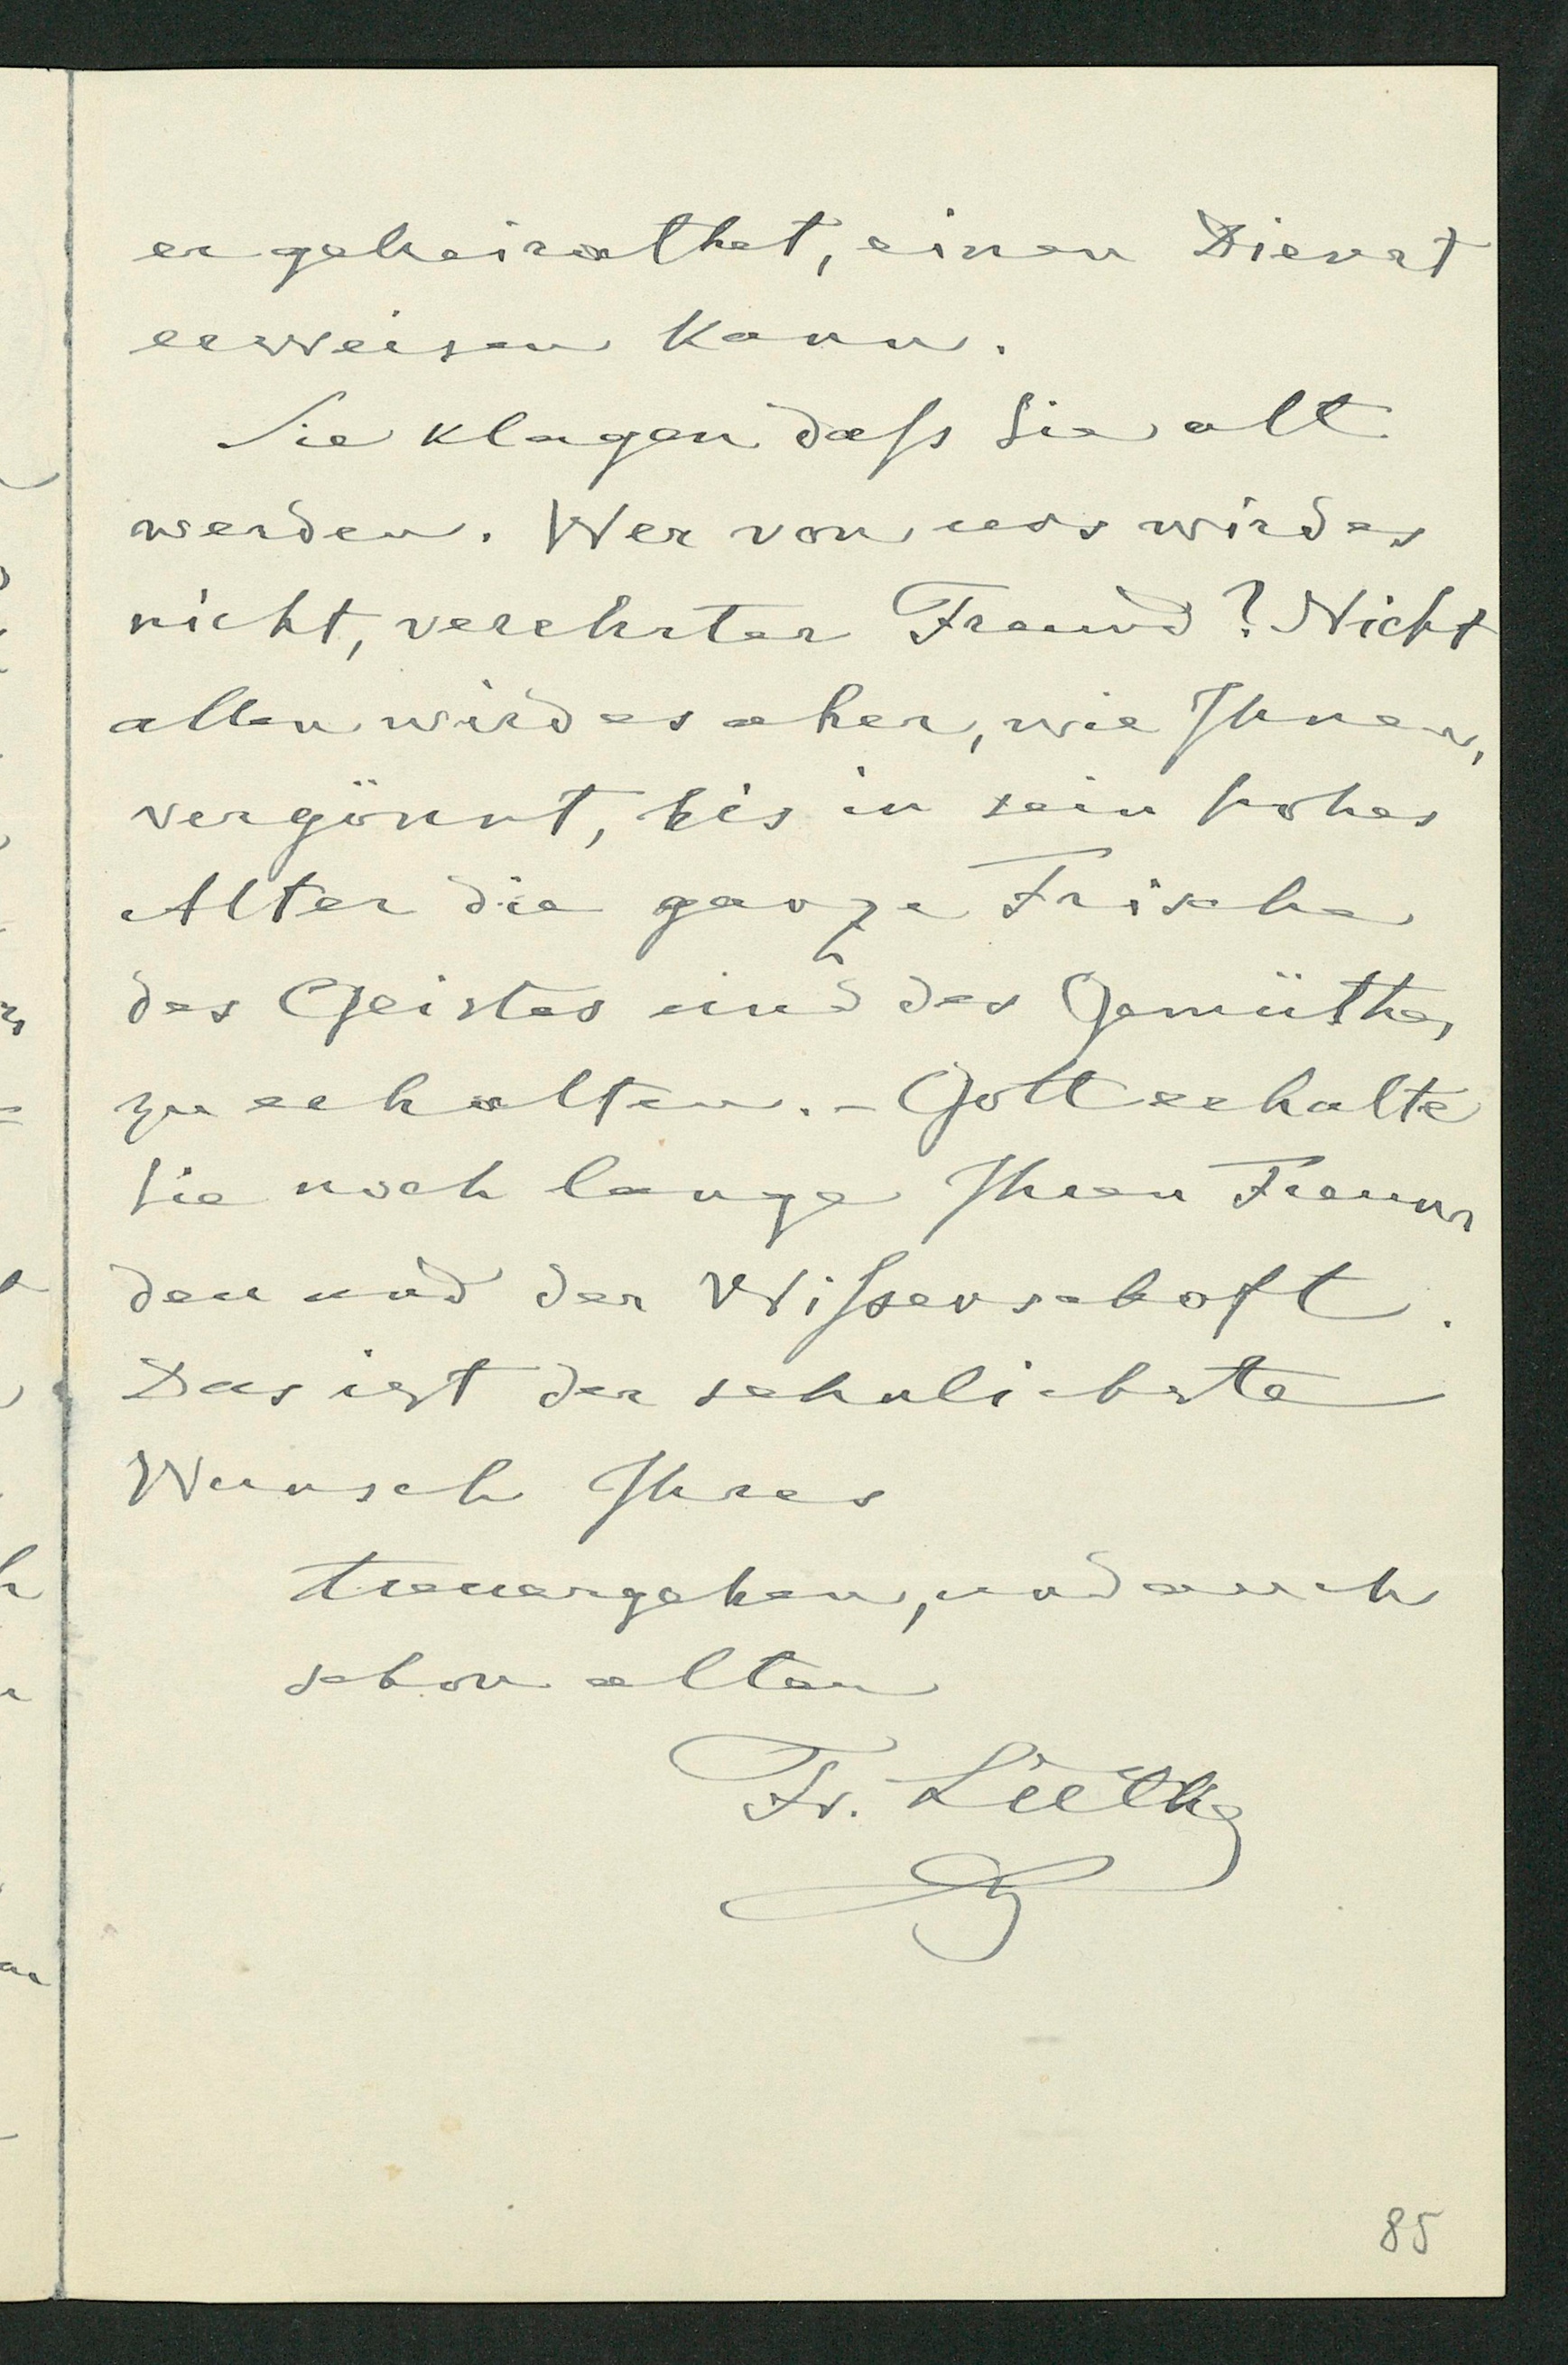 er geheirathet, einen Dienst
erweisen kann.
Sie klagen daſs Sie alt
werden. Wer von uns wird es
nicht, verehrter Freund? Nicht
allen wird es aber, wie Ihnen,
vergönnt, bis in sein hohes
Alter die ganze Frische
des Geistes und des Gemüthes
zu erhalten. - Gott erhalte
Sie noch lange Ihren Freun
den und der Wiſsenschaft.
Das ist der sehnlichste
Wunsch Ihres
treuergeben, und auch
schon alten
Fr. Lütke
85